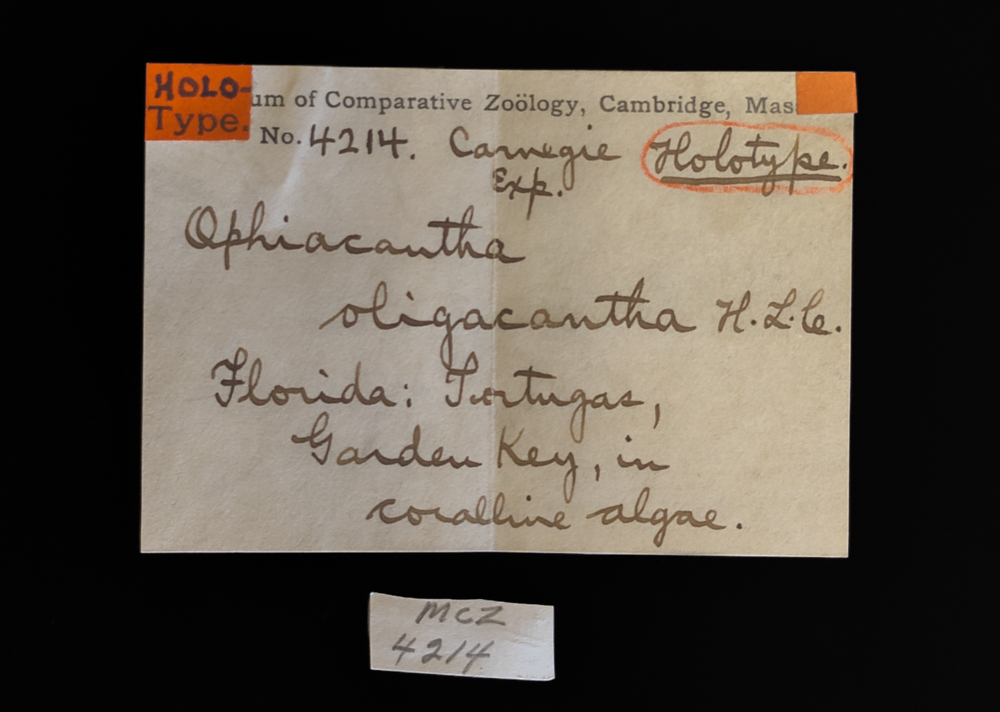 HOLO-
Type.
um of Comparative Zoölogy, Cambridge, Mas
No. 4214. Carnegie Holotype.
Exp.
Ophiacantha
oligacantha H.L.C.
Florida: Tortugas,
Garden Key, in
coralline algae.
MCZ
4214